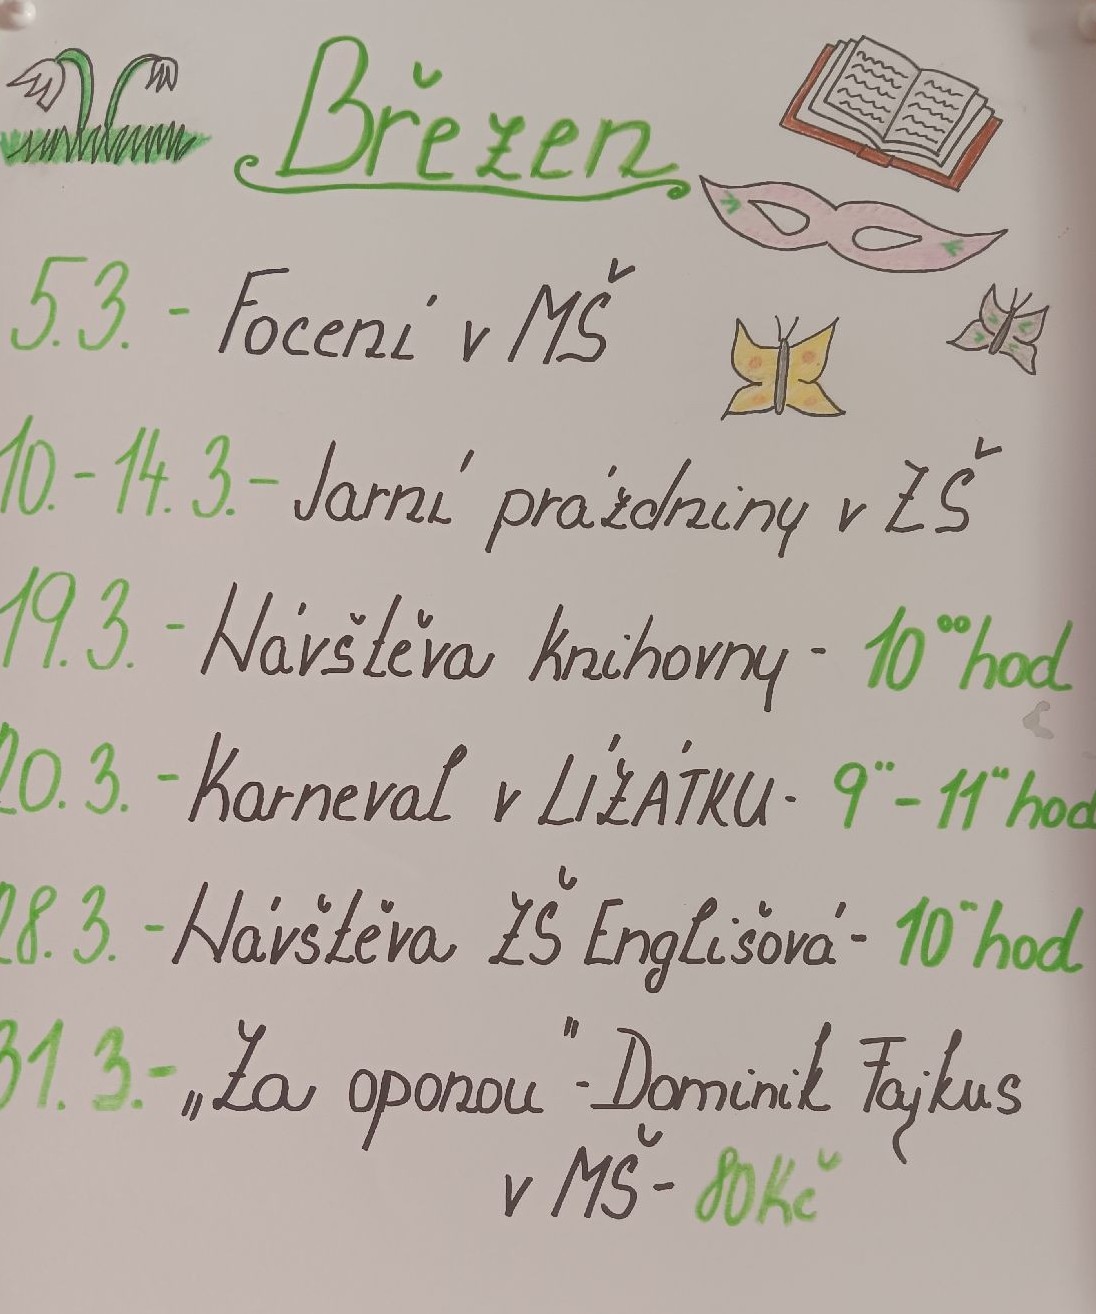 Březen
5.3. - Focení v MŠ
10.-14.3.- Jarní prázdniny v ZŠ
19.3. - Návštěva knihovny - 10⁰⁰ hod
20.3. - Karneval v LÍZÁTKU - 9⁰⁰ - 11⁰⁰ hod
28.3. - Návštěva ZŠ Englišová - 10⁰⁰ hod
31.3. - „Za oponou" - Dominik Fajkus
v MŠ - 80Kč